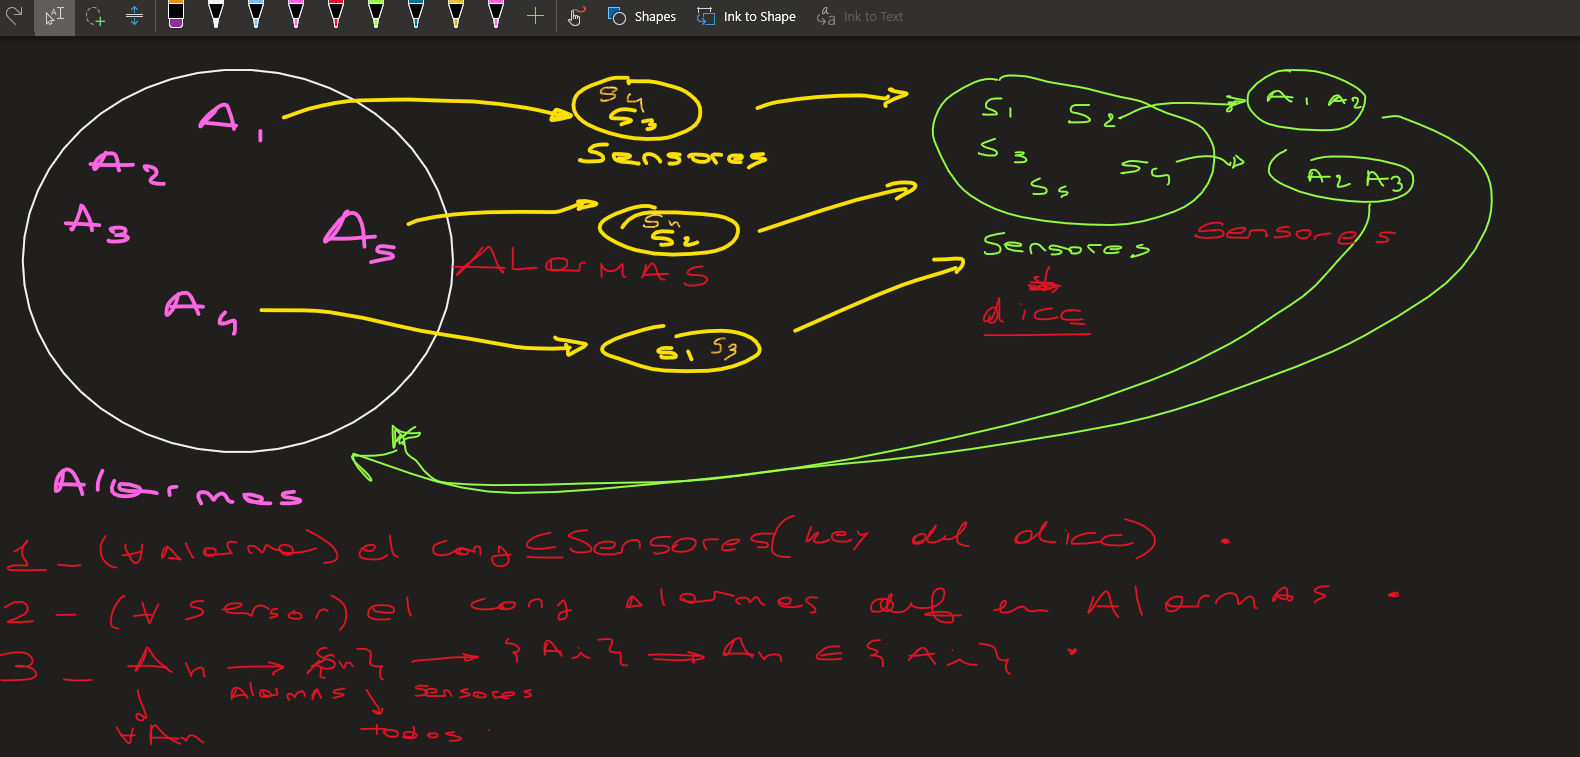 Shapes Ink to Shape Ink to Text
A1
A2
A3
A5
A4
Alarmas
S4
S3
Sensores
Sn
S2
ALarMAS
S1 S3
S1 S2
S3 S4
S5
Sensores
dicc
A1 A2
A2 A3
Sensores
1_ (∀ Alarma) el conj ⊆ Sensores (key del dicc) .
2 - (∀ Sensor) el conj Alarmas def en Alarmas .
3 _ An → {Sn} → {Ai} ⟹ An ∈ {Ai} .
Alarmas sensores
∀ An todos